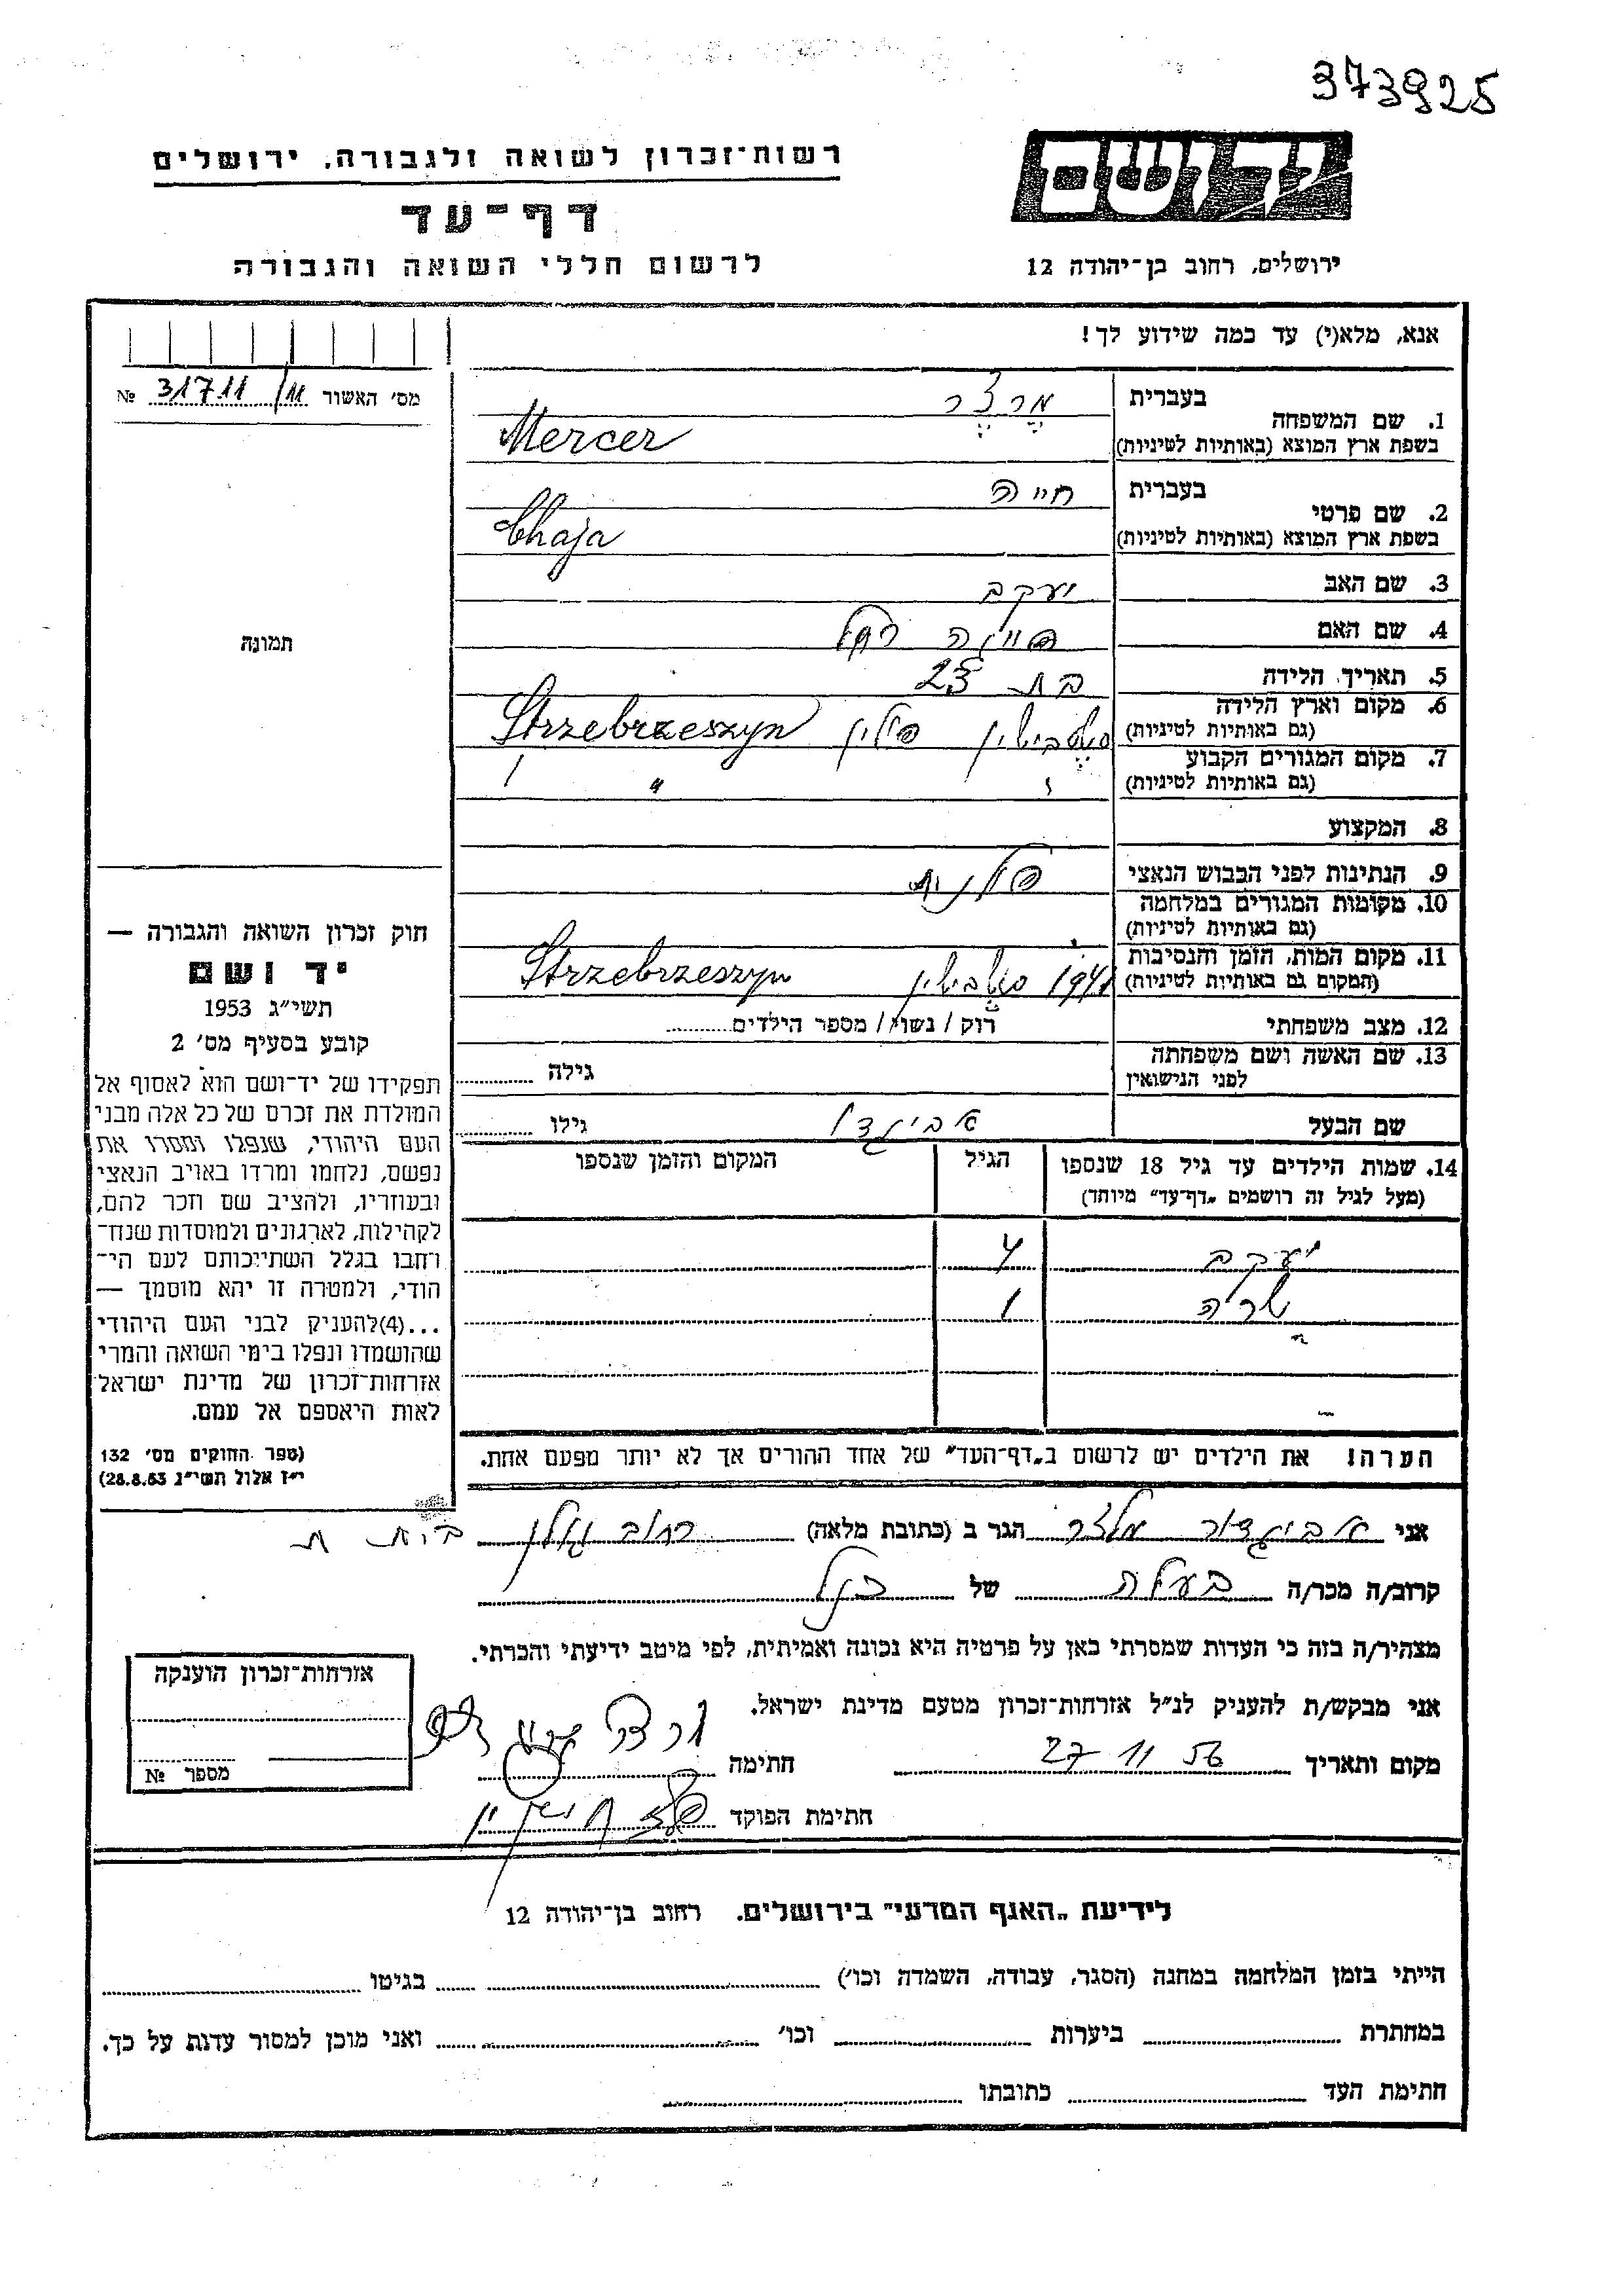 373925
רשות־זכרון לשואה ולגבורה, ירושלים
יד ושם
דף־עד
לרשום חללי השואה והגבורה
ירושלים, רחוב בן־יהודה 12
אנא, מלא(י) עד כמה שידוע לך!
מס' האשור 31711/11 №
תמונה
1. שם המשפחה
בעברית מרצר
בשפת ארץ המוצא (באותיות לטיניות) Mercer
2. שם פרטי
בעברית חייה
בשפת ארץ המוצא (באותיות לטיניות) Chaja
3. שם האב יעקב
4. שם האם רחל
5. תאריך הלידה בת 23
6. מקום וארץ הלידה
(גם באותיות לטיניות) פולין Strzebrzeszyn
7. מקום המגורים הקבוע
(גם באותיות לטיניות) "
8. המקצוע
9. הנתינות לפני הכבוש הנאצי פולנית
10. מקומות המגורים במלחמה
(גם באותיות לטיניות)
11. מקום המות, הזמן והנסיבות
(המקום גם באותיות לטיניות) 1941 Strzebrzeszyn
12. מצב משפחתי רוק / נשוי / מספר הילדים
13. שם האשה ושם משפחתה
לפני הנישואין גילה
שם הבעל גילו
14. שמות הילדים עד גיל 18 שנספו הגיל המקום והזמן שנספו
(מעל לגיל זה רושמים „דף־עד” מיוחד)
יעקב 4
שרה 1
הערה! את הילדים יש לרשום ב„דף־העד” של אחד ההורים אך לא יותר מפעם אחת.
חוק זכרון השואה והגבורה —
יד ושם
תשי״ג 1953
קובע בסעיף מס' 2
תפקידו של יד־ושם הוא לאסוף אל
המולדת את זכרם של כל אלה מבני
העם היהודי, שנפלו ומסרו את
נפשם, נלחמו ומרדו באויב הנאצי
ובעוזריו, ולהציב שם וזכר להם,
לקהילות, לארגונים ולמוסדות שנח־
רבו בגלל השתייכותם לעם הי־
הודי, ולמטרה זו יהא מוסמך —
...(4) להעניק לבני העם היהודי
שהושמדו ונפלו בימי השואה והמרי
אזרחות־זכרון של מדינת ישראל
לאות היאספם אל עמם.
(ספר החוקים מס' 132
י״ז אלול תשי״ג 28.8.53)
אני אביגדור מלצר הגר ב (כתובת מלאה) רחוב
קרוב/ה מכר/ה בעלה של הנ״ל
מצהיר/ה בזה כי העדות שמסרתי כאן על פרטיה היא נכונה ואמיתית, לפי מיטב ידיעתי והכרתי.
אני מבקש/ת להעניק לנ״ל אזרחות־זכרון מטעם מדינת ישראל.
מקום ותאריך 27 11 56 חתימה
חתימת הפוקד
אזרחות־זכרון הוענקה
מספר №
לידיעת „האגף המדעי” בירושלים. רחוב בן־יהודה 12
הייתי בזמן המלחמה במחנה (הסגר, עבודה, השמדה וכו') בגיטו
במחתרת ביערות וכו' ואני מוכן למסור עדות על כך.
חתימת העד כתובתו